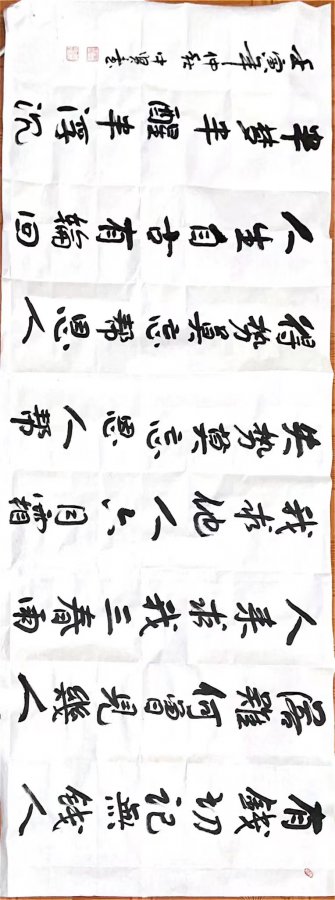 有錢切記無錢人
落難何曾見幾人
人來求我三春雨
我求他人六月霜
失勢莫忘恩人幫
得勢莫忘幫恩人
人生自古有輪回
半夢半醒半浮沉
壬寅年仲秋